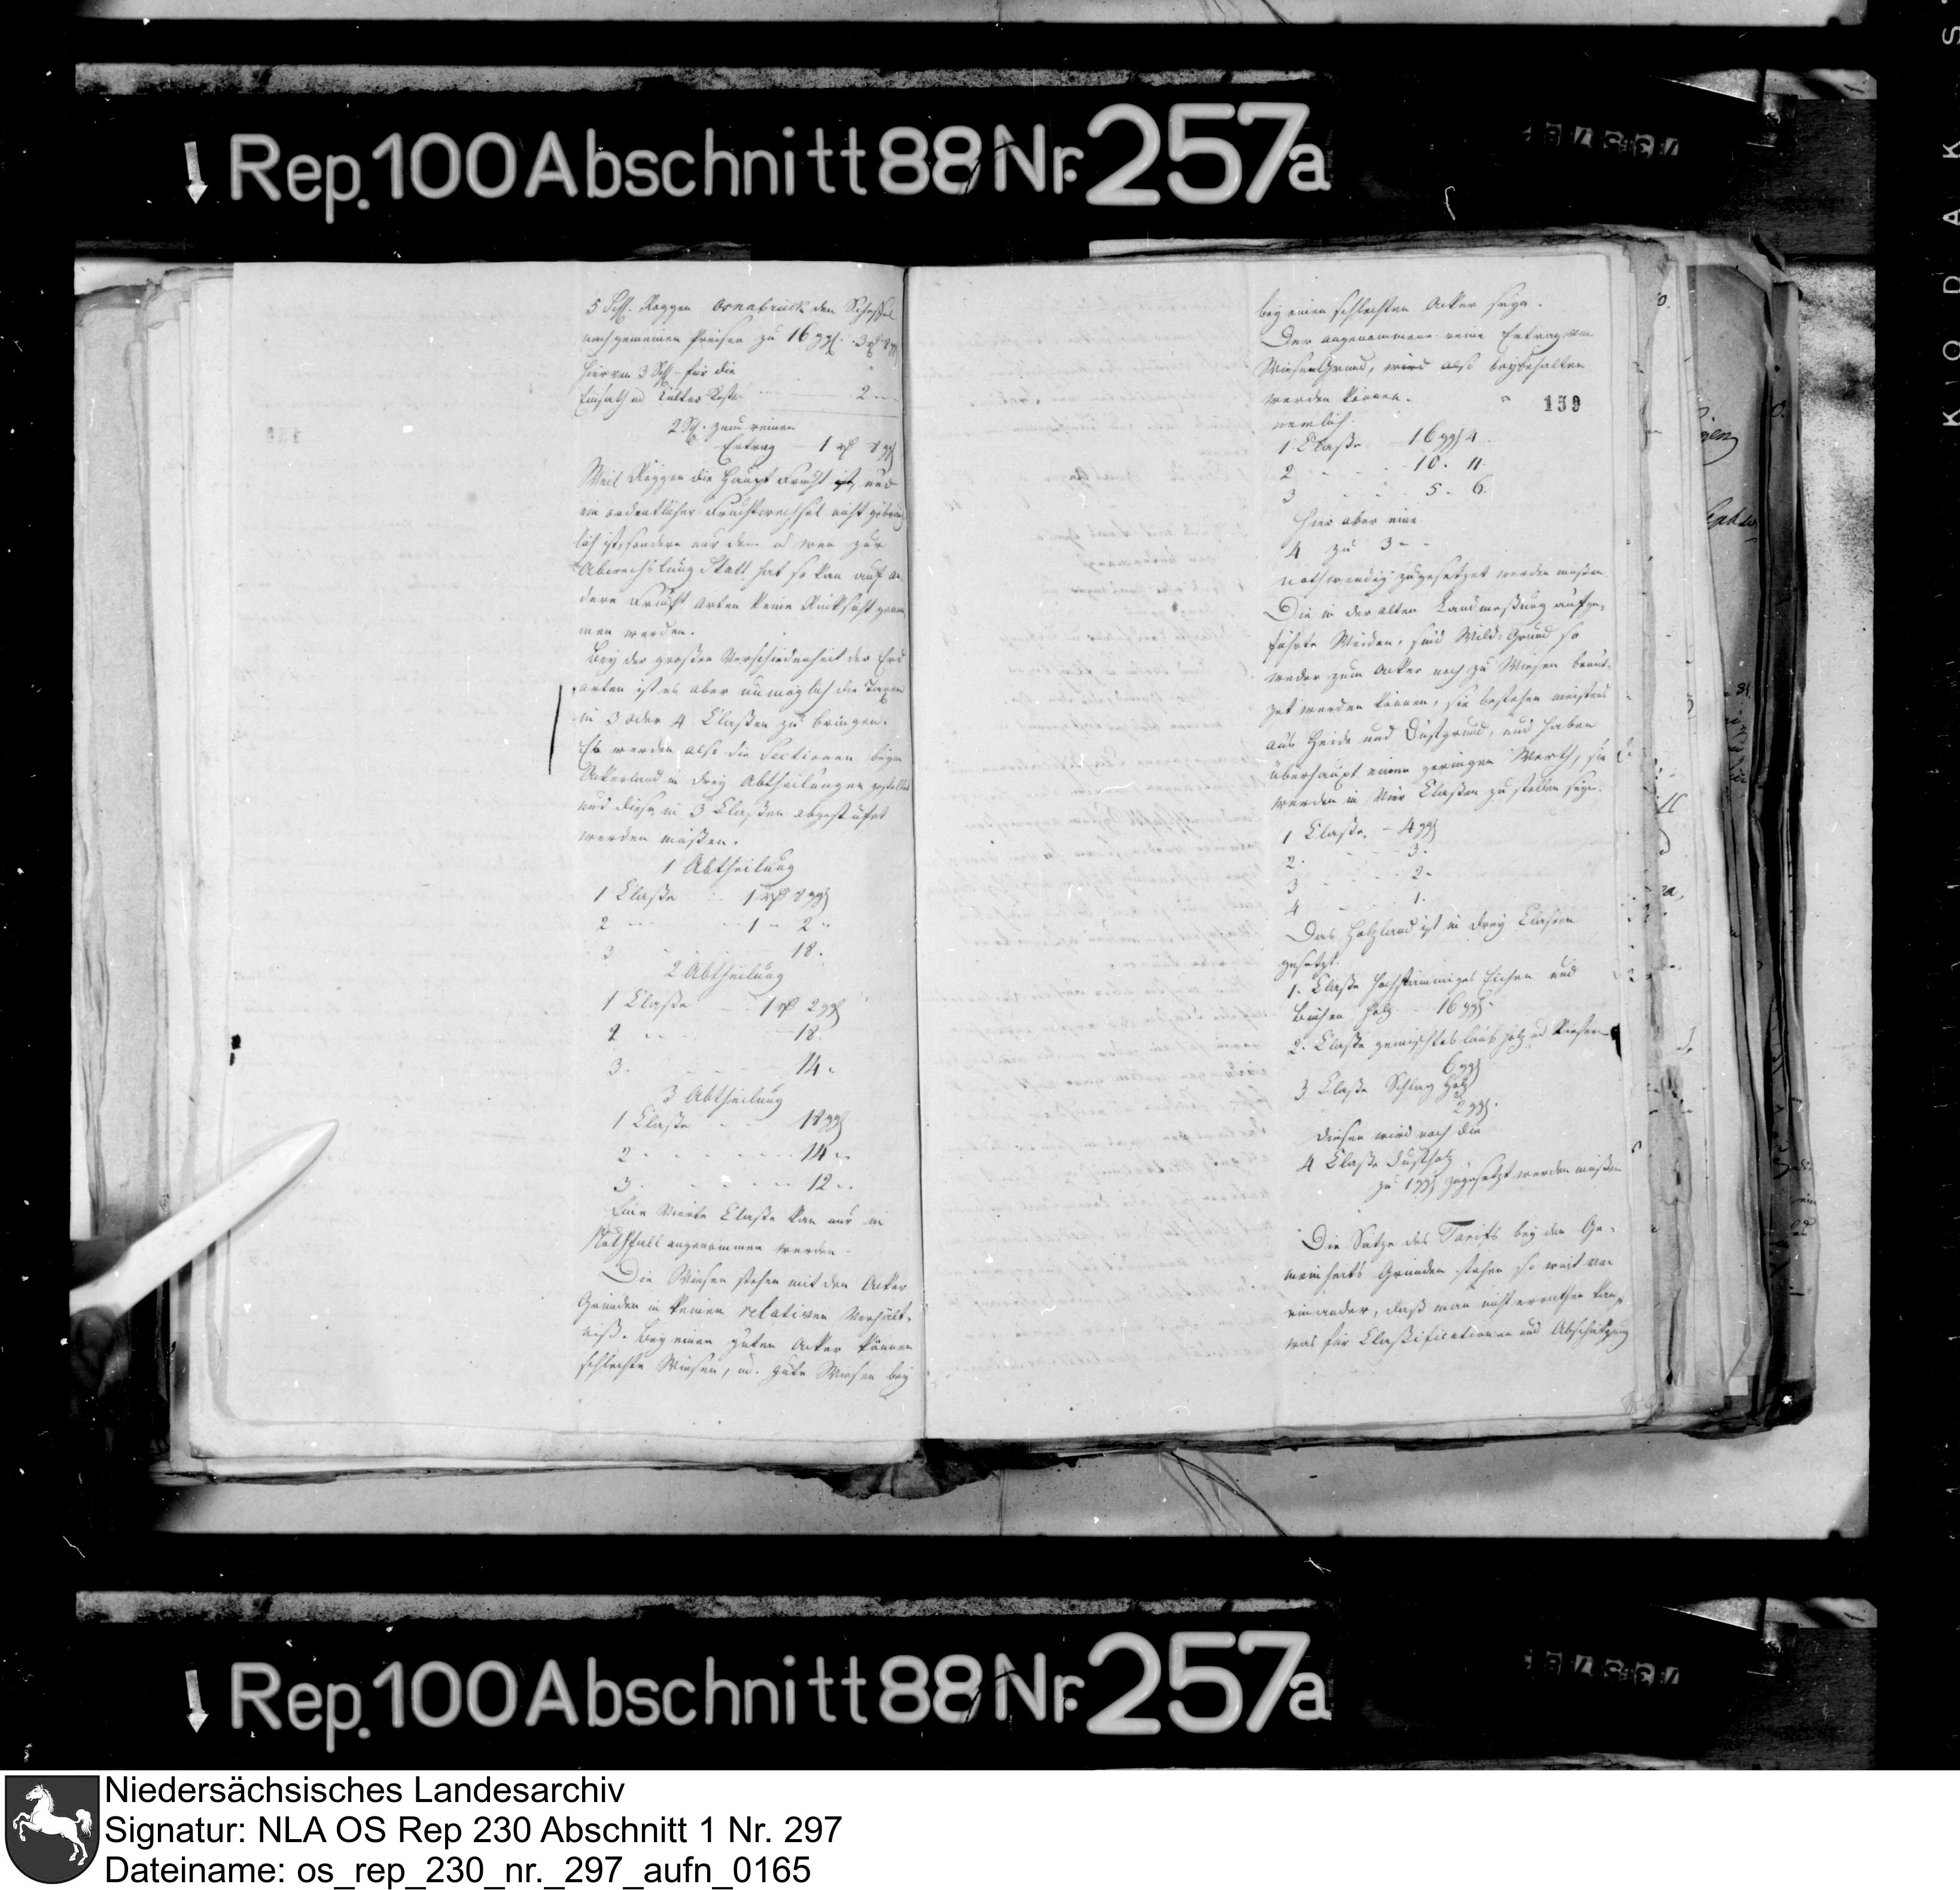 Rep. 100 Abschnitt 88 Nr. 257a
5 Schfl. Roggen Osnabrück den Scheffel
nach gemeinen Preisen zu 16 ggl. 3 rf 8 ggl
Hiervon 3 Schfl für die
Einsath und Cultur Kosten 2
2 Schf. zum reinen
Ertrag 1 rf 8 ggl
Weil Roggen die Haupt Frucht ist, und
ein ordentlicher Fruchtwechsel nicht gebräuch
lich ist, sondern nur dann und wann zur
Abwechslung Statt hat so kan auf an
dere Frucht Arten keine Rücksicht genom
men werden.
Bey der großen Verschiedenheit der Erd
arten ist es aber unmöglich die Taxen
in 3 oder 4 Claßen zu bringen.
Es werden also die Sectionen beym
Ackerland in drey Abtheilungen gestellt
und diese in 3 Claßen abgestufet
werden müßen.
1 Abtheilung
1 Claße 1 rf 8 ggl
2 1 2
3 18.
2 Abtheilung
1 Claße 1 rf 2 ggl
2 18.
3. 14.
3 Abtheilung
1 Claße 18 ggl
2 14
3. 12
Eine vierte Claße kan nur im
Nothfall angenommen werden.
Die Wiesen stehen mit den Acker
Gründen in keinen relativen Verhält-
niß. Bey einen guten Acker können
schlechte Wiesen, und gute Wiesen bey
bey einen schlechten Acker seyn.
Der angenommene reine Ertrag vom
Wiesen Grund, wird also beybehalten
werden können.
159
nemlich
1 Claße 16 ggl 4
2 10. 11.
3 5. 6.
Hier aber eine
4 zu 3
nothwendig zugesetzet werden müßen
Die in der alten Landmeßung aufge-
führte Weiden, sind Wild-Grund so
weder zum Acker noch zu Wiesen benut-
zet werden können, sie bestehen meistens
aus Heide und Dustgrund, und haben
überhaupt einen geringen Werth, sie
werden in Vier Claßen zu stellen seyn.
1 Claße. 4 ggl
2. 3.
3 2.
4 1.
Das Holzland ist in drey Claßen
gesetzt.
1. Claße hochstämmiges Eichen und
Buchen Holz 16 ggl.
2. Claße gemischtes laub holz und Kiefern
6 ggl
3 Claße Schlag Holz
2 ggl.
diesen wird noch die
4 Claße Dustholz
zu 1 ggl zugesetzt werden müßen
Die Sätze des Tarifs bey den Ge-
meinheits Gründen stehen so weit von
einander, daß man nicht errathen kan,
was für Claßificationen und Abschätzung
Rep. 100 Abschnitt 88 Nr. 257a
KODAK S
Niedersächsisches Landesarchiv
Signatur: NLA OS Rep 230 Abschnitt 1 Nr. 297
Dateiname: os_rep_230_nr._297_aufn_0165